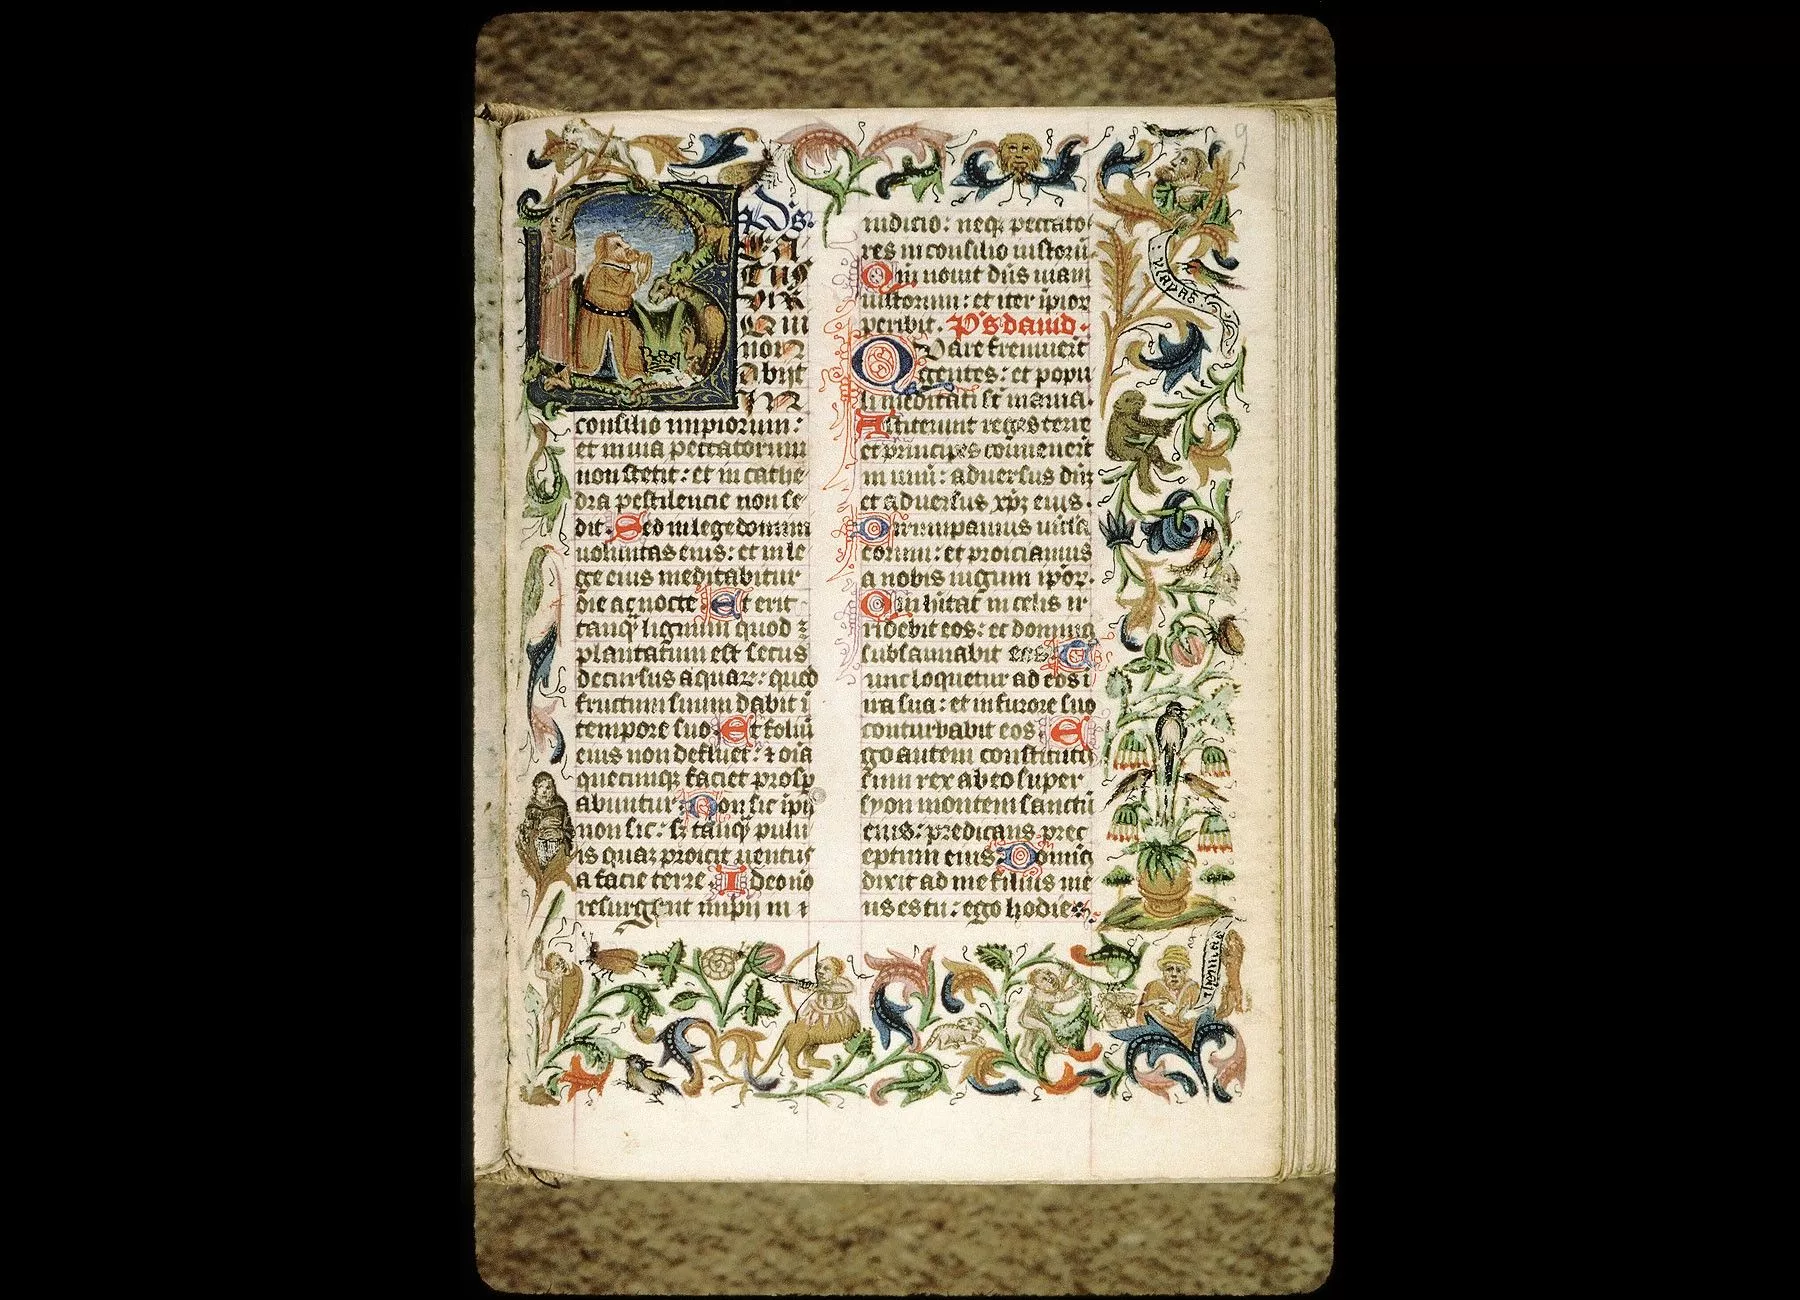 9
Ps.
EA
TUS
VIR
Qui
non
Abijt
IN
consilio impiorum:
et in uia peccatorum
non stetit: et in cathe
dra pestilencie non se
dit. Sed in lege domini
uoluntas eius: et in le
ge eius meditabitur
die ac nocte Et erit
tanq̄ lignum quod
plantatum est secus
decursus aquaꝝ: quod
fructum suum dabit ī
tempore suo. Et foliū
eius non defluet: ⁊ oīa
quecumqꝫ faciet prosp
abuntur. Non sic ipij
non sic: sꝫ tanq̄ pulu
is quaꝫ proicit uentus
a facie terre Ideo nō
resurgent impij in
iudicio: neqꝫ peccato
res in consilio iustorū.
Qm̄ nouit dūs uiam
iustorum: et iter ipioꝝ
peribit. Ps dauid.
Quare fremuerūt
gentes: et popu
li meditati sūt inania.
Astiterunt reges terre
et principes conuenerūt
in unū: aduersus dūm
et aduersus xpm̄ eius.
Dirumpamus uincla
eorum: et proiciamus
a nobis iugum ipōꝝ.
Qui hītat in celis ir
ridebit eos: et dominus
subsannabit eos T
unc loquetur ad eos ī
ira sua: et in furore suo
conturbabit eos. E
go autem constitutus
sum rex ab eo super
syon montem sanctū
eius: predicans prec
eptum eius Dominus
dixit ad me filius me
us es tu: ego hodie